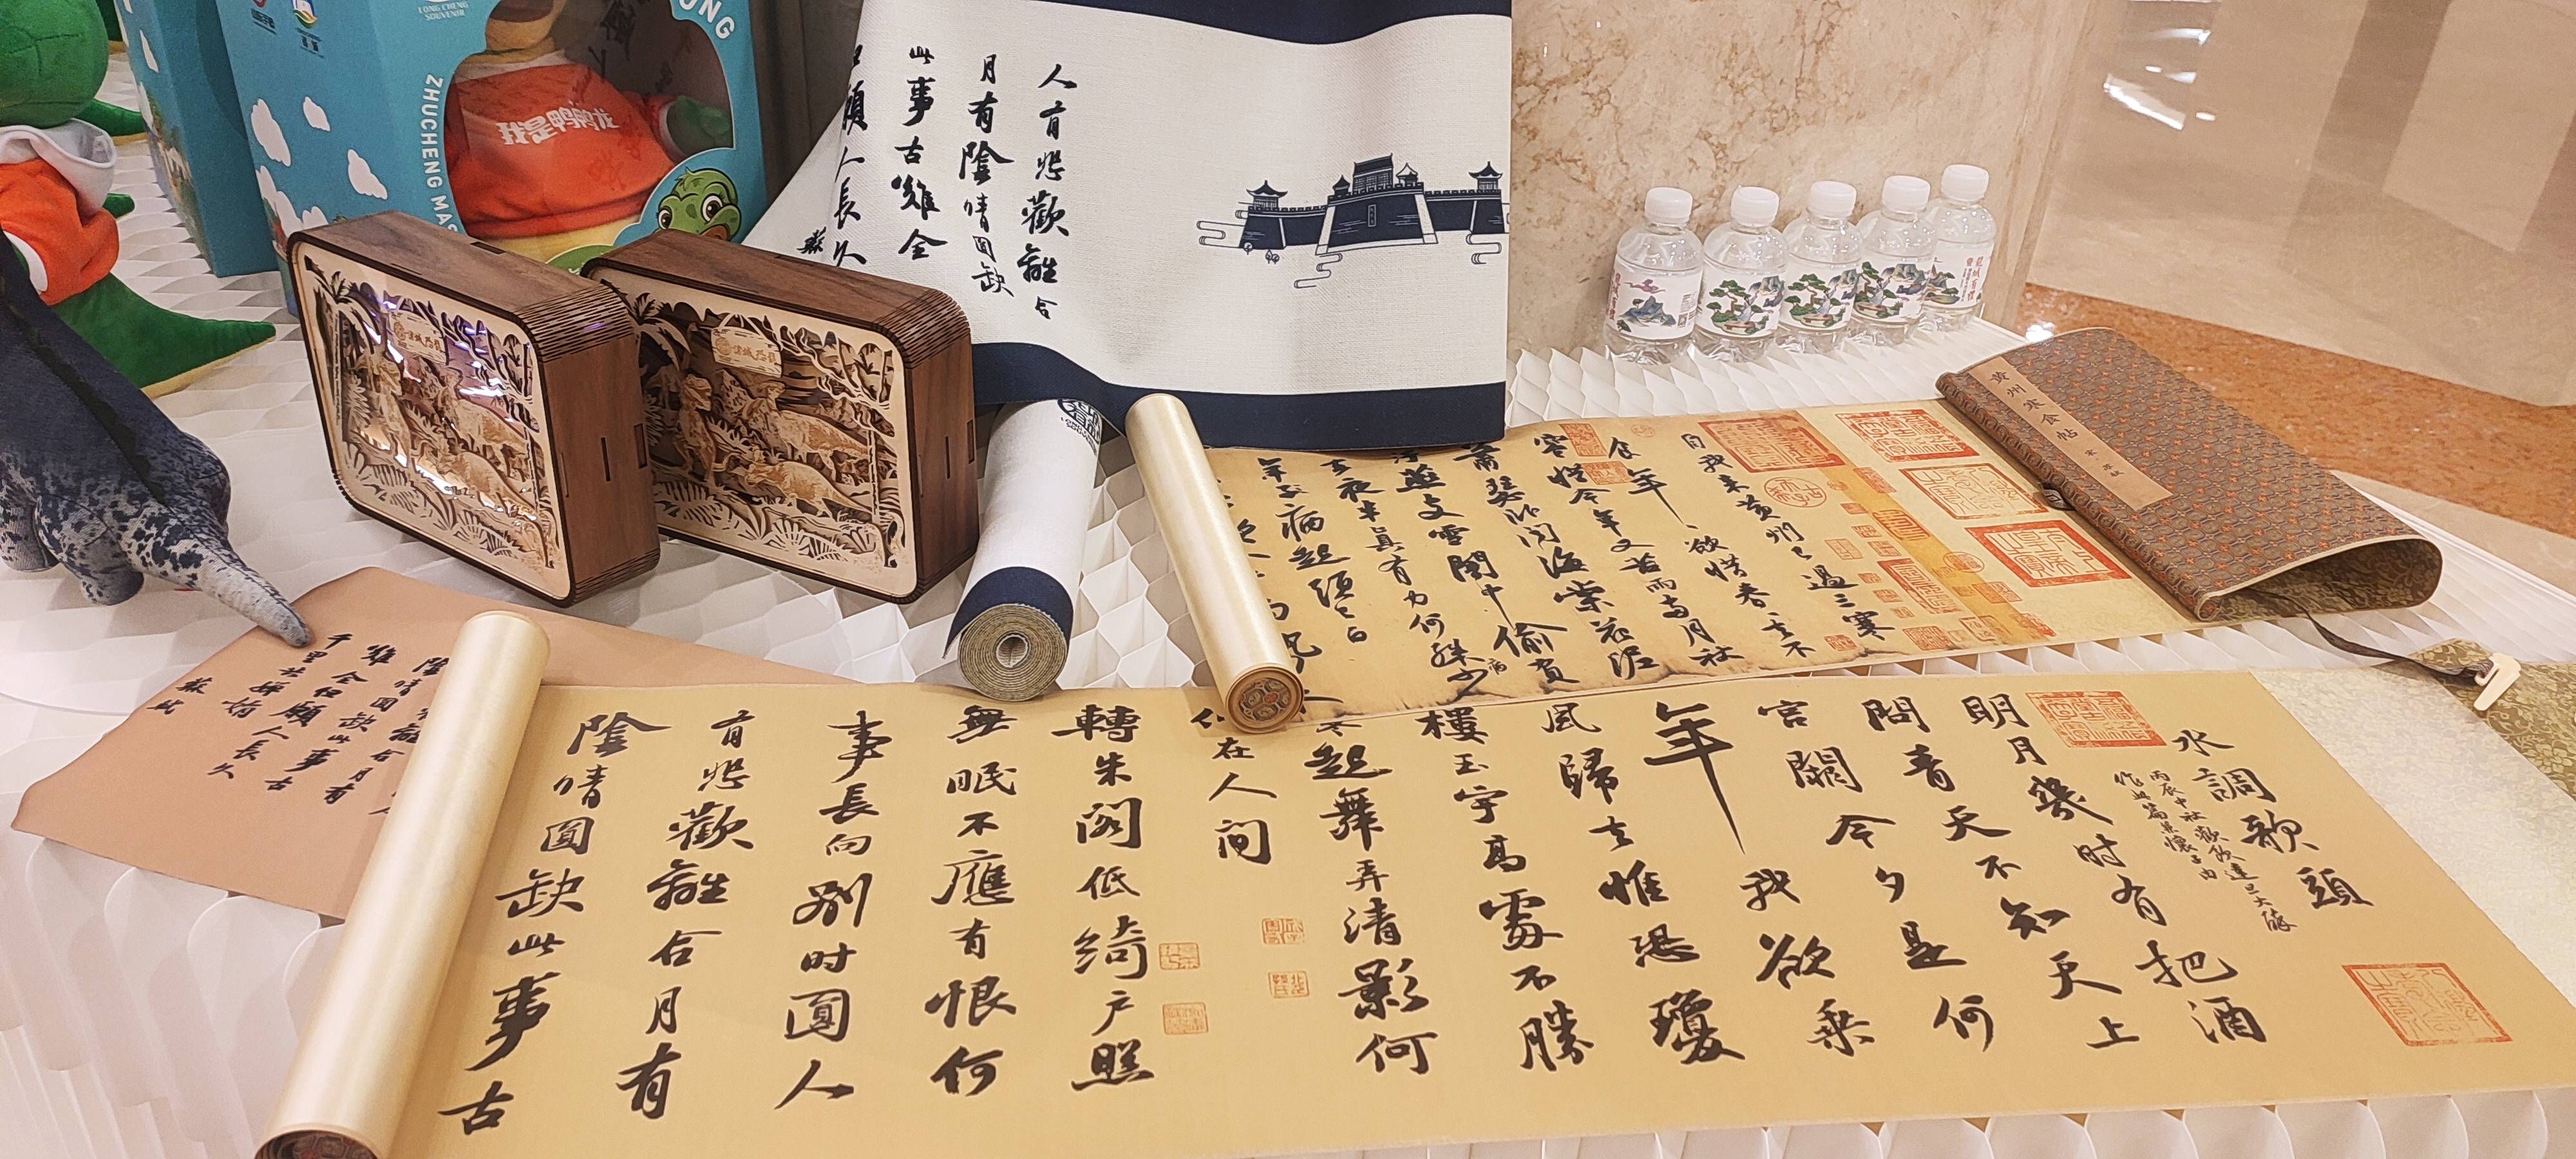 LONG CHENG
SOUVENIR
ZHUCHENG MA
我是鸭鸭龙
人有悲歡離合
月有陰晴圓缺
此事古難全
但願人長久
蘇
諸城恐龍
黄州寒食帖
宋 蘇軾
自我來黄州已過三寒
食年年欲惜春春去不
容惜今年又苦雨兩月秋
蕭瑟卧聞海棠花泥
汙燕支雪闇中偷負
去夜半真有力何殊少
年子病起須已白
病
水調歌頭
丙辰中秋歡飲達旦大醉
作此篇兼懷子由
明月幾时有把酒
問青天不知天上
宫闕今夕是何
年我欲乘
風歸去惟恐瓊
樓玉宇高處不勝
寒起舞弄清影何
似在人间
轉朱阁低綺户照
無眠不應有恨何
事長向别时圓人
有悲歡離合月有
陰晴圓缺此事古
離合月有
陰晴圓缺此事古
難全但願人長久
千里共嬋娟
蘇軾